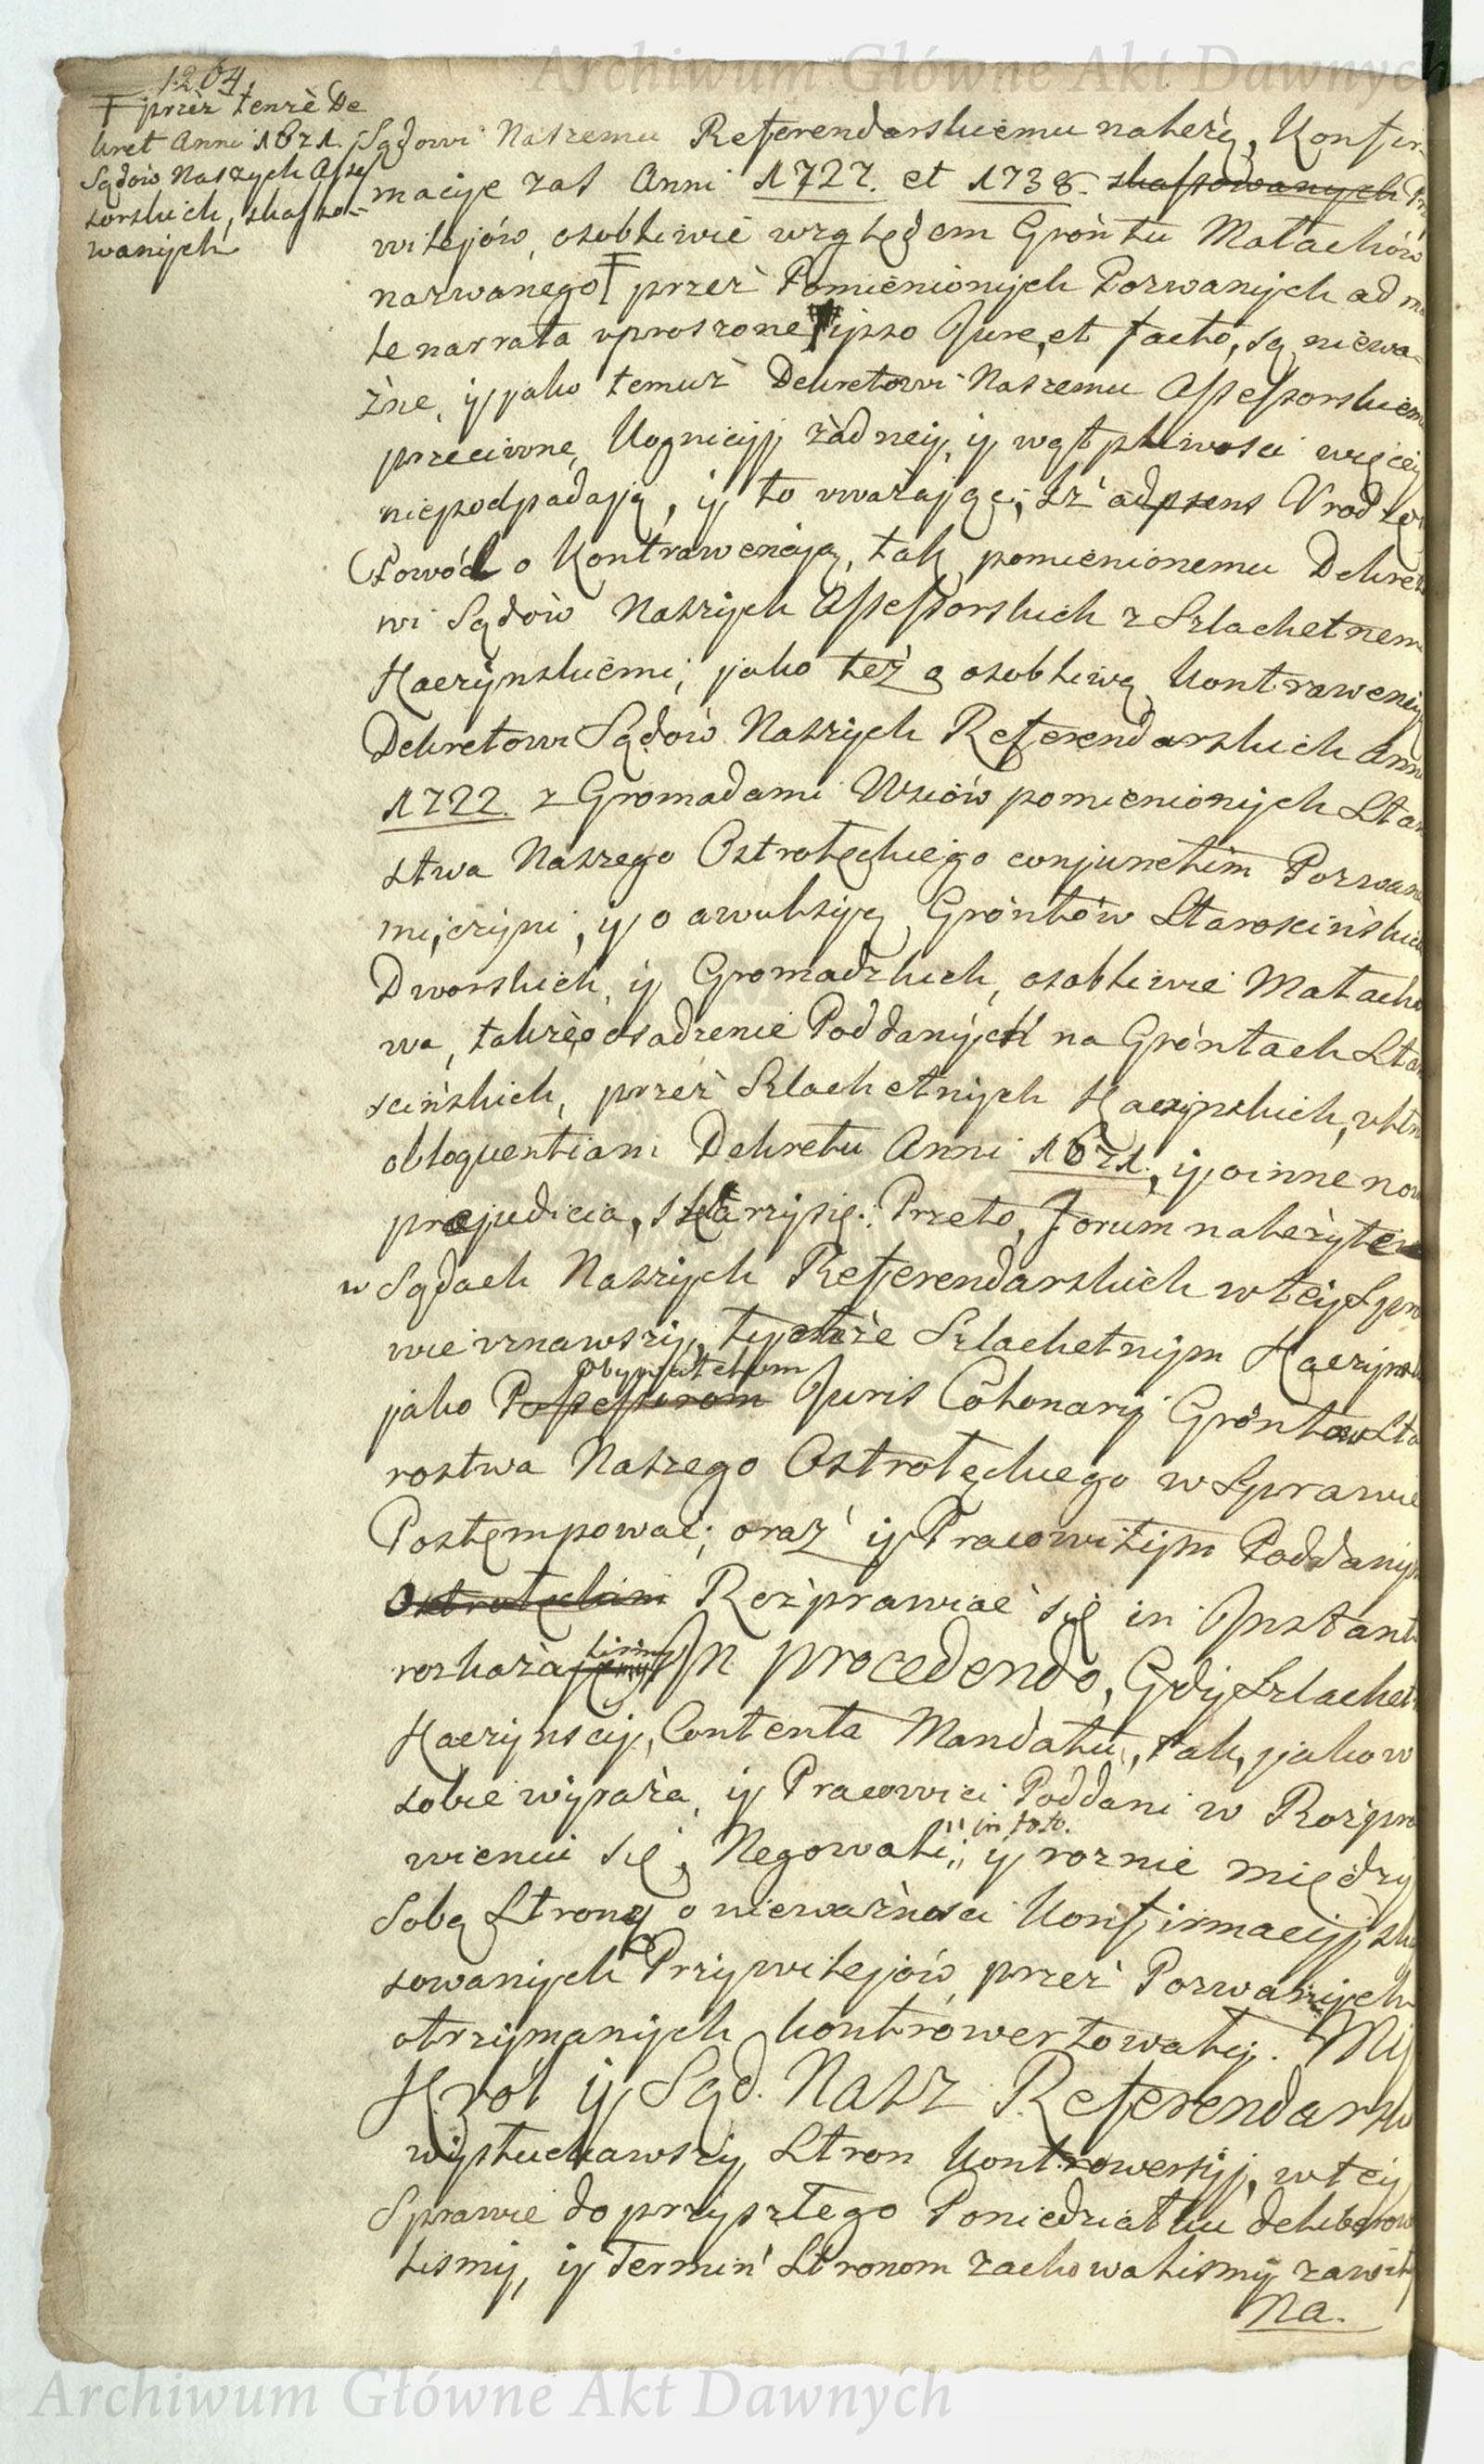 Archiwum Główne Akt Dawnych
1204.
† przèz tenzè De
kret Anni 1621.
Sądów Naszych Asse
sorskich, skasso-
wanych
Sądowi Naszemu Referendarskiemu należą, Konfir-
macije zaś Anni 1727. et 1738. skassowanych Pri
wilejów, osobliwie względem Gróntu Małachów
nazwanego † przez Pomienionych Pozwanych ad ma
le narrata uproszone ipso Jure, et facto, są niewa-
żne, y jako temuż Dekretowi Naszemu Assessorskiem
przeciwne, Kognicyj żadney, y wątpliwości więcey
niepodpadają, y to uważając, Iż adpræns Urodzo
Powód o Kontrawencją, tak pomienionemu Dekret
wi Sądów Naszych Assessorskich z Szlachetnem
Kaczynskiemi, jako też o osobliwą Kontrawencij
Dekretowi Sądów Naszych Referendarskich Ann
1722. z Gromadami Wsiów pomienionych Sta
stwa Naszego Ostrołęckiego conjunctim Pozwan
mi, czyni, y o awulsiją Gróntów Starościńskic
Dworskich, y Gromadzkich, osobliwie Małacho
wa, także o osadzenie Poddanych na Gróntach Sta
ścińskich, przez Szlachetnych Kaczynskich, ultra
obloquentiam Dekretu Anni 1621, y o inne now
præjudicia, skarzy się. Przeto, forum należyte
w Sądach Naszych Referendarskich w tey Spra
wie uznawszy, tychże Szlachetnym Kaczyns
Obywatelom
jako Possessorom Juris Colonarij Gróntów Sta
rostwa Naszego Ostrołęckiego w Sprawie
Postempować; oraz y Pracowitym Poddanym
Ostrołęckim Rozprawiać się in Instanti
liśmy
rozkaza In procedendo, Gdy Szlachet
Kaczynscy, Contenta Mandatu, tak, jako w
sobie wyraża, y Pracowici Poddani w Rozpra
in toto.
wieniu się, Negowali; y roznie między
Sobą Strony o nieważności Konfirmacyj ska
sowanych Przywilejów, przez Pozwanych
otrzymanych kontrowertowały. My
Król y Sąd Nasz Referendarsk
wysłuchawszy Stron Kontrowersyj, w tey
Sprawie do przyszłego Poniedziałku deliberowa
liśmy, y Termin Stronom zachowaliśmy zawity
Na.
Archiwum Główne Akt Dawnych